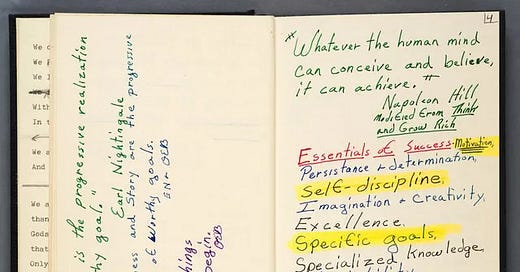 We
We
With
We
And
than
Gods
that
Only
is the progressive realization
thy goal."
Earl Nightingale
ess and Story are the progressive
of worthy goals.
things
begin.
4
"Whatever the human mind
can conceive and believe,
it can achieve."
Napoleon Hill
Modified From Think
and Grow Rich
Essentials of Success. Motivation,
Persistance + determination,
Self-discipline,
Imagination + Creativity,
Excellence,
Specific goals,
Specialized knowledge,